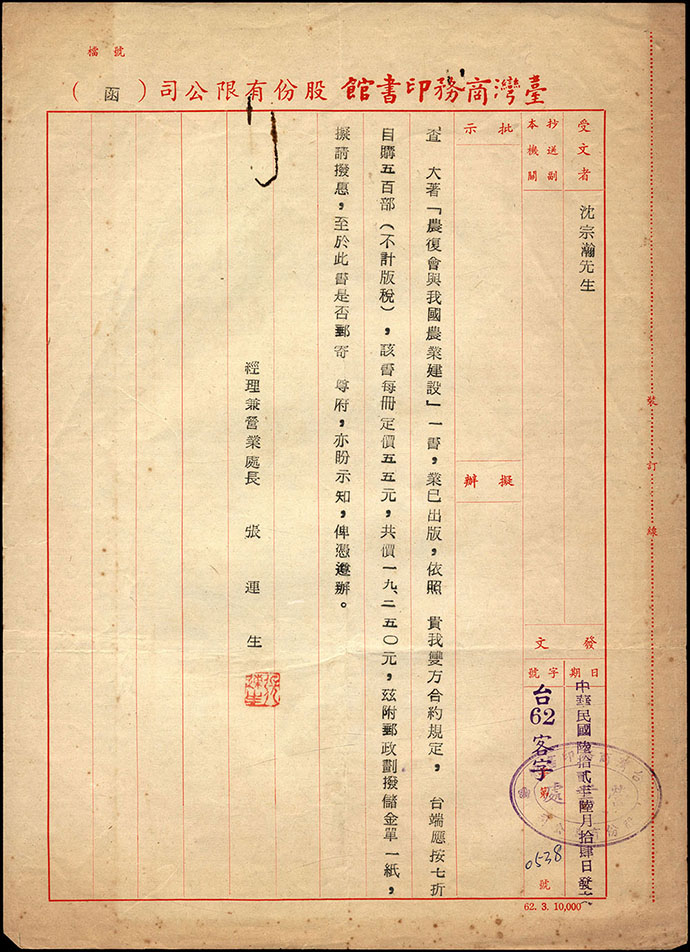 檔號
臺灣商務印書館股份有限公司（函）
受文者
沈宗瀚先生
抄送副本機關
批示
擬辦
發文
日期
中華民國陸拾貳年陸月拾肆日發文
字號
台62客字第0538號
查　大著「農復會與我國農業建設」一書，業已出版，依照　貴我雙方合約規定，　台端應按七折
自購五百部（不計版稅），該書每冊定價五五元，共價一九、二五〇元，茲附郵政劃撥儲金單一紙，
撥請撥惠，至於此書是否郵寄　尊府，亦盼示知，俾憑遵辦。
經理兼營業處長　張連生
裝訂線
62. 3. 10,000